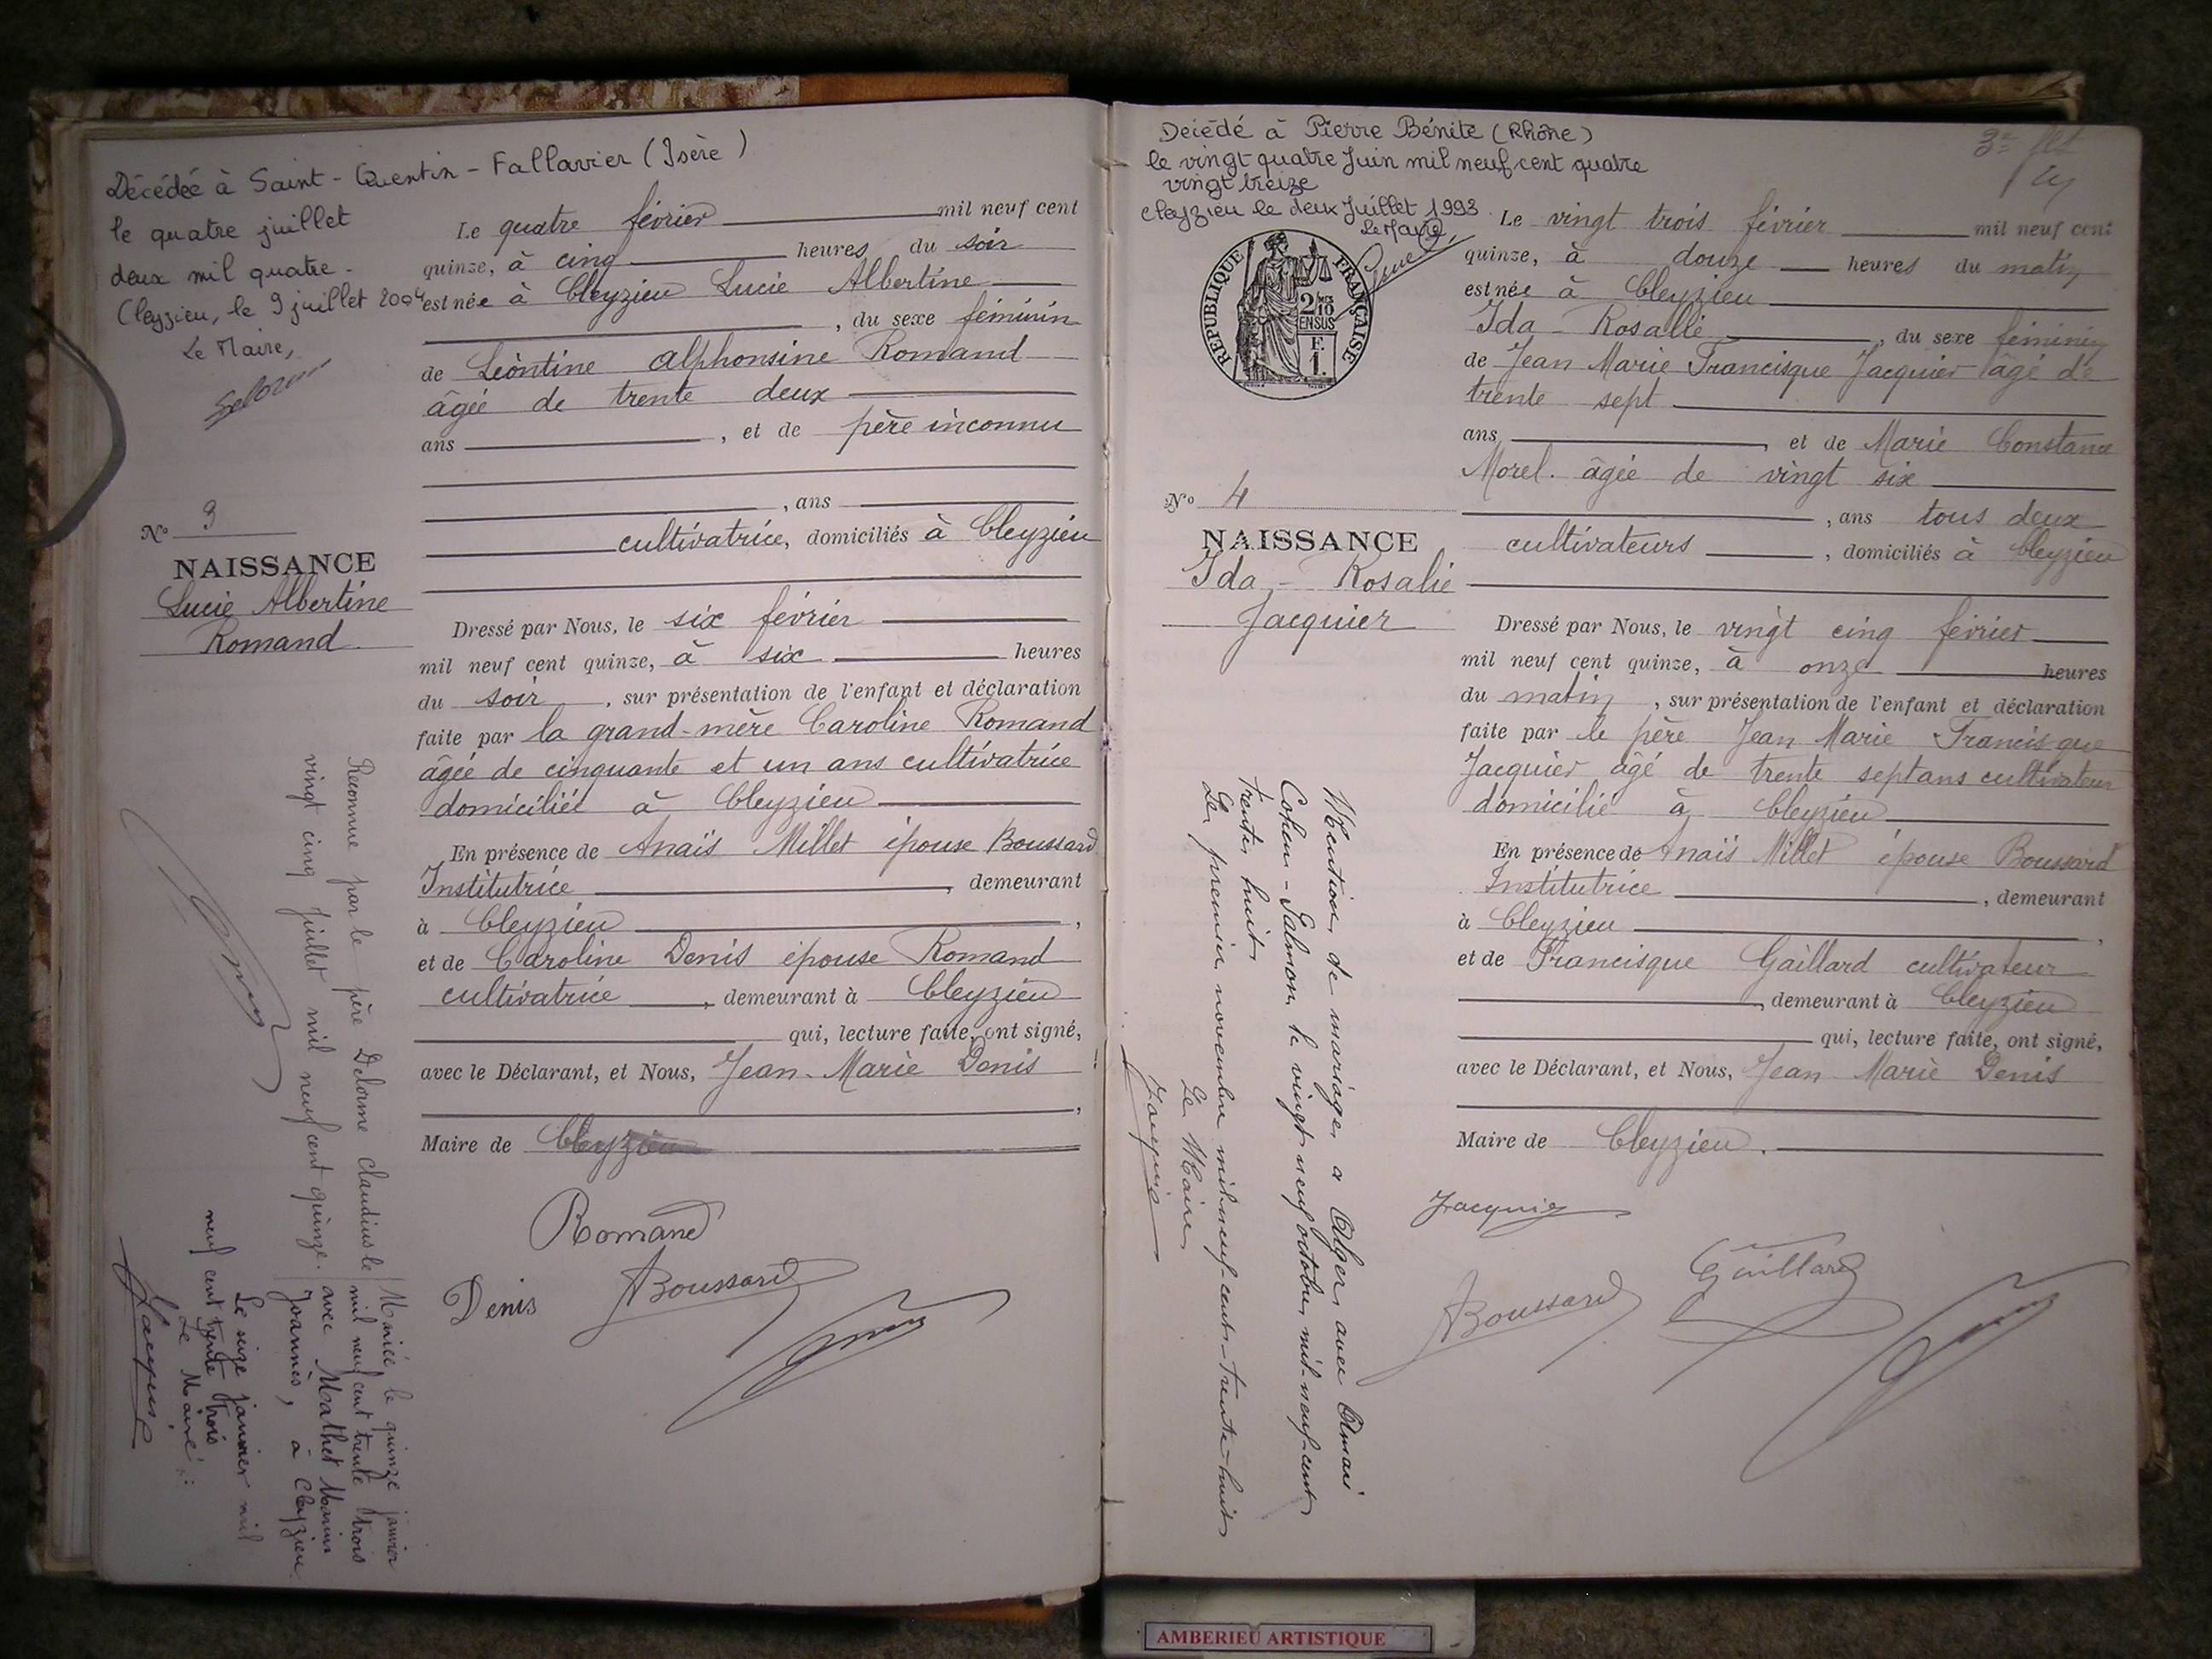 Décédée à Saint-Quentin-Fallavier (Isère)
le quatre juillet
deux mil quatre.
Cleyzieu, le 9 juillet 2004
Le Maire,
Le quatre février mil neuf cent
quinze, à cinq heures du soir
est née à Cleyzieu Lucie Albertine
, du sexe féminin
de Léontine Alphonsine Romand
âgée de trente deux
ans , et de père inconnu
, ans
cultivatrice, domiciliés à Cleyzieu
N° 3
NAISSANCE
Lucie Albertine
Romand
Dressé par Nous, le six février
mil neuf cent quinze, à six heures
du soir , sur présentation de l'enfant et déclaration
faite par la grand-mère Caroline Romand
âgée de cinquante et un ans cultivatrice
domiciliée à Cleyzieu
En présence de Anaïs Millet épouse Boussard
Institutrice , demeurant
à Cleyzieu ,
et de Caroline Denis épouse Romand
cultivatrice , demeurant à Cleyzieu
qui, lecture faite, ont signé,
avec le Déclarant, et Nous, Jean-Marie Denis
,
Maire de Cleyzieu
Romand
Denis Boussard
Reconnue par le père Delorme Claudius le
vingt cinq juillet mil neuf cent quinze.
Marié le quinze janvier
mil neuf cent trente trois
avec Mathet Marius
Joannès, à Cleyzieu
Le seize janvier mil
neuf cent trente trois
Le Maire :
Jacquier
Décédé à Pierre Bénite (Rhône)
le vingt quatre Juin mil neuf cent quatre
vingt treize
Cleyzieu le deux Juillet 1993
Le Maire,
REPUBLIQUE FRANÇAISE
2/10
EN SUS
F.
1.
3e
Le vingt trois février mil neuf cent
quinze, à douze heures du matin
est née à Cleyzieu
Ida-Rosalie , du sexe féminin
de Jean Marie Francisque Jacquier âgé de
trente sept
ans , et de Marie Constance
Morel. âgée de vingt six
, ans tous deux
cultivateurs , domiciliés à Cleyzieu
N° 4
NAISSANCE
Ida-Rosalie
Jacquier
Dressé par Nous, le vingt cinq février
mil neuf cent quinze, à onze heures
du matin , sur présentation de l'enfant et déclaration
faite par le père Jean Marie Francisque
Jacquier âgé de trente sept ans cultivateur
domicilié à Cleyzieu
En présence de Anaïs Millet épouse Boussard
Institutrice , demeurant
à Cleyzieu ,
et de Francisque Gaillard cultivateur
, demeurant à Cleyzieu
qui, lecture faite, ont signé,
avec le Déclarant, et Nous, Jean Marie Denis
Maire de Cleyzieu.
Jacquier
Boussard Gaillard
Mention de mariage à Alger avec
Cohen-Salmon, le vingt neuf octobre mil-neuf-cent
trente huit
Le premier novembre mil-neuf-cent-trente-huit
Le Maire
Jacquier
AMBERIEU ARTISTIQUE